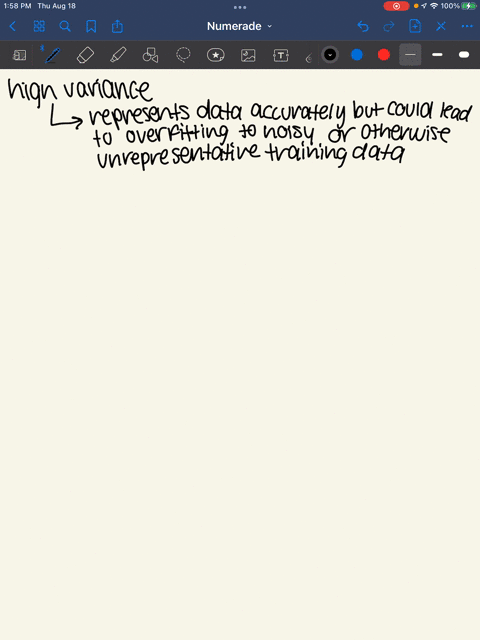 1:58 PM Thu Aug 18
100%
Numerade
high variance
represents data accurately but could lead
to overfitting to noisy or otherwise
unrepresentative training data